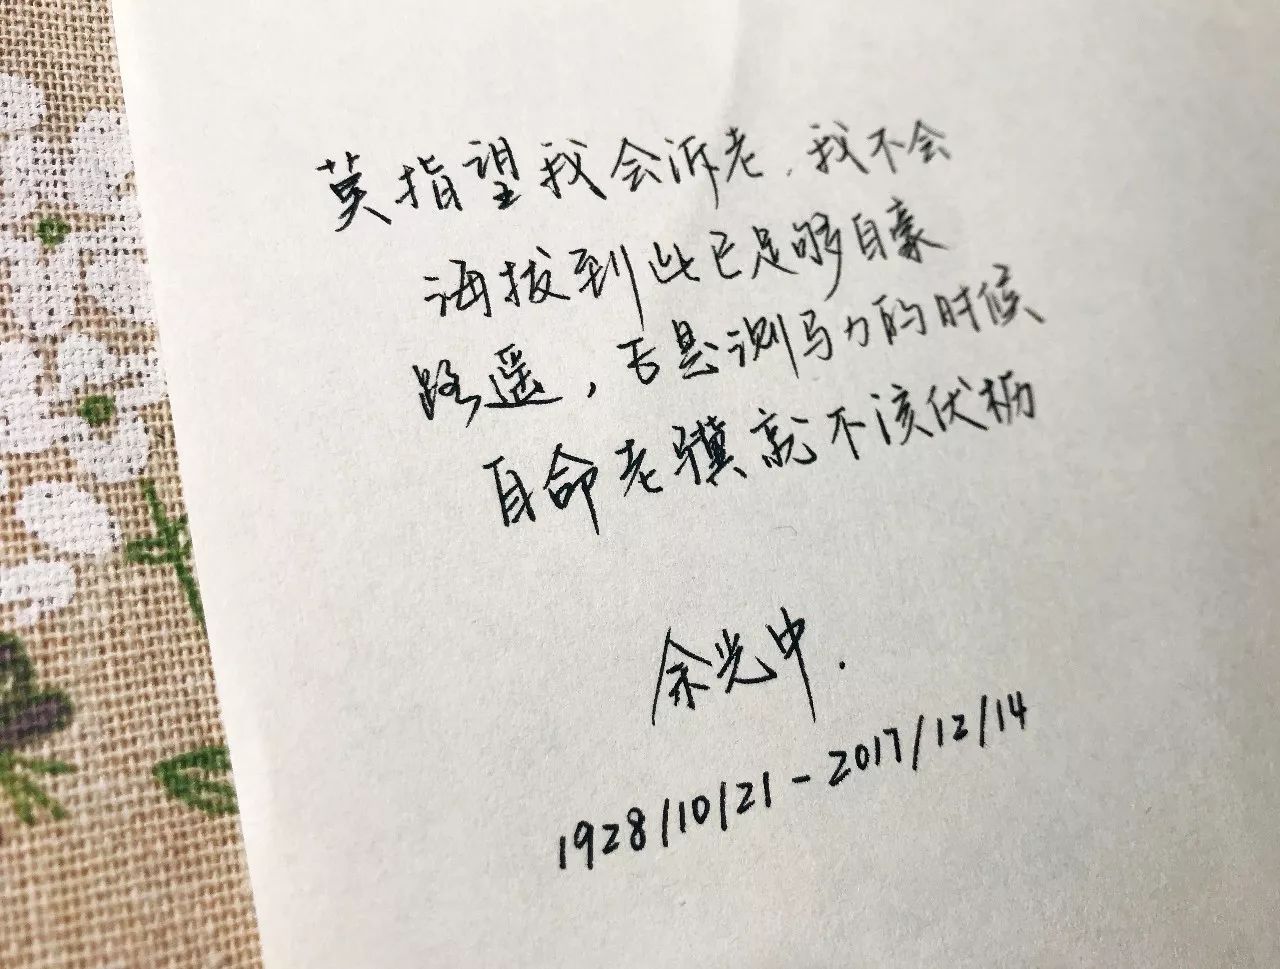 莫指望我会诉老，我不会
海拔到此已足够自豪
路遥，正是测马力的时候
自命老骥就不该伏枥
余光中.
1928/10/21-2017/12/14